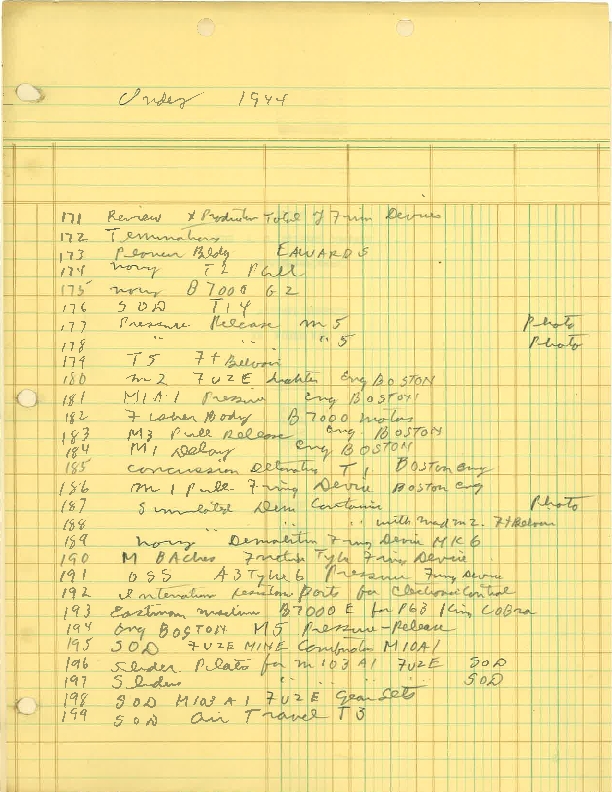 Index 1944
171 Review & Production Total of Firing Devices
172 Terminations
173 Pioneer Bldg EAWARDS
174 Navy T2 Pull
175 Navy B7000 G2
176 SOD T14
177 Pressure Release M5 Photo
178 " " " 5 Photo
179 T5 Ft Belvoir
180 M2 FUZE Lighter Eng BOSTON
181 M1A1 Pressure Eng BOSTON
182 Fisher Body B7000 Motors
183 M3 Pull Release Eng BOSTON
184 M1 Delay Eng BOSTON
185 Concussion Detonator T1 BOSTON Eng
186 M1 Pull Firing Device BOSTON Eng
187 Simulated Dem Container Photo
188 " " " with M2. Ft Belvoir
189 Navy Demolition Firing Device MK6
190 M BAcher Friction Type Firing Device
191 OSS A3 Type 6 Pressure Firing Device
192 Internation resistor Parts for Electronic Control
193 Eastman B7000E for P63 King COBRA
194 Eng BOSTON M5 Pressure-Release
195 SOD FUZE MINE Combination M10A1
196 Slider Plates for M103A1 FUZE SOD
197 Sliders " " " " SOD
198 SOD M103A1 FUZE Gear Sets
199 SOD Air Travel T3